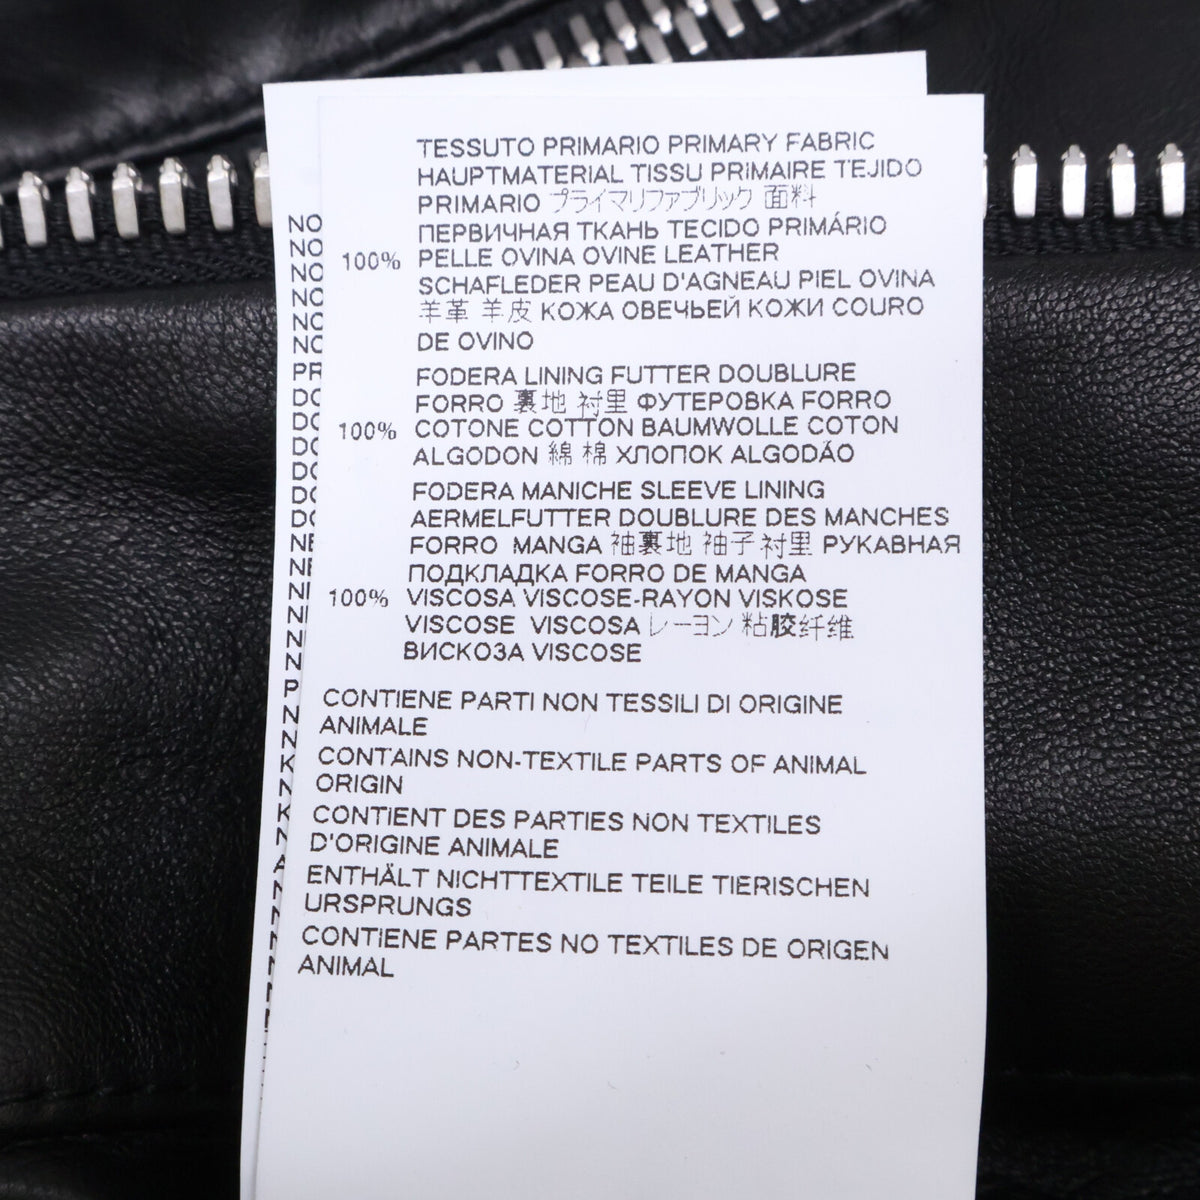 TESSUTO PRIMARIO PRIMARY FABRIC
HAUPTMATERIAL TISSU PRIMAIRE TEJIDO
PRIMARIO プライマリファブリック 面料
ПЕРВИЧНАЯ ТКАНЬ TECIDO PRIMÁRIO
100% PELLE OVINA OVINE LEATHER
SCHAFLEDER PEAU D'AGNEAU PIEL OVINA
羊革 羊皮 КОЖА ОВЕЧЬЕЙ КОЖИ COURO
DE OVINO
FODERA LINING FUTTER DOUBLURE
FORRO 裏地 衬里 ФУТЕРОВКА FORRO
100% COTONE COTTON BAUMWOLLE COTON
ALGODON 綿 棉 ХЛОПОК ALGODÃO
FODERA MANICHE SLEEVE LINING
AERMELFUTTER DOUBLURE DES MANCHES
FORRO MANGA 袖裏地 袖子衬里 РУКАВНАЯ
ПОДКЛАДКА FORRO DE MANGA
100% VISCOSA VISCOSE-RAYON VISKOSE
VISCOSE VISCOSA レーヨン 粘胶纤维
ВИСКОЗА VISCOSE
CONTIENE PARTI NON TESSILI DI ORIGINE
ANIMALE
CONTAINS NON-TEXTILE PARTS OF ANIMAL
ORIGIN
CONTIENT DES PARTIES NON TEXTILES
D'ORIGINE ANIMALE
ENTHÄLT NICHTTEXTILE TEILE TIERISCHEN
URSPRUNGS
CONTIENE PARTES NO TEXTILES DE ORIGEN
ANIMAL